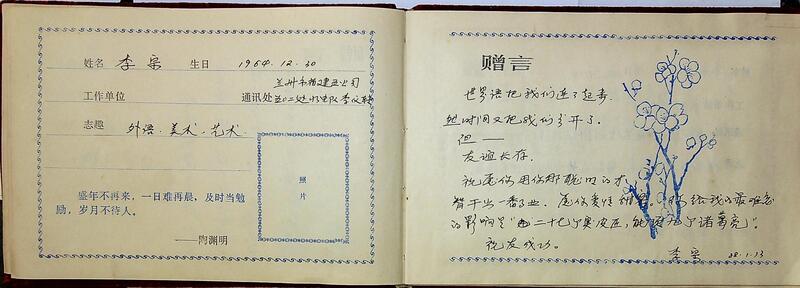 姓名 李宗 生日 1964.12.30
兰州市 建 公司
工作单位 通讯处 二处 队李
志趣 外语.美术.艺术
照
片
盛年不再来，一日难再晨，及时当勉
励，岁月不待人。
——陶渊明
赠言
世界语把我们连了起来
然时间又把我们分开了。
但——
友谊长存。
祝愿你用你那聪明的才
智干出一番事业.愿你爱情 . 给我的最难忘
的影响是“ 二十七个臭皮匠，能 个诸葛亮”.
祝友成功.
李宗 88.1.13